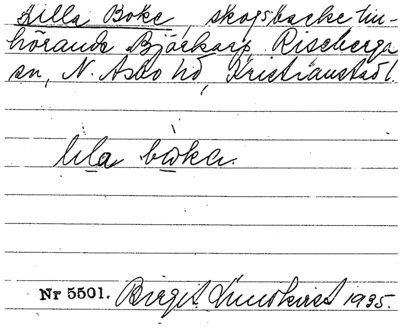 Lilla Boke, skogsbacke till-
hörande Björkarp, Riseberga
sn, N. Åsbo hd, Kristianstads l.
lila bωka.
Nr 5501. Birgit Lundkvist 1935.